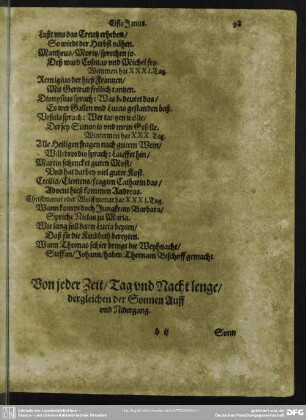 Cisio Janus. 98
Last vns das Creutz erheben/
So würdt der Herbst nähen.
Mattheus/Moritz/sprechen so.
Deß ward Cosmas vnd Michel fro.
Weinmon hat XXXI. Tag.
Remigius der hieß Frantzen/
Mit Gertrud frölich tantzen.
Dionysius sprach: Was bedeutet das/
Es wer Gallen vnd Lucas gestanden baß.
Vrsula sprach: Wer tantzen wölle/
Der sey Simonis vnd
Wintermon hat XXX. Tag.
Alle Heiligen fragen nach gutem Wein/
Willebrordus sprach: Lauffet hin/
Martin schencket guten Most/
Vnd hat darbey viel guter Kost.
Cecilia/Clemens/fragten Catharin das/
Advent hieß kommen Andreas.
Christmonat oder Wolffmonat hat XXXI. Tag.
Wann kompt doch Jungfraw Barbara/
Spricht Niclas zu Maria.
Wie lang soll dann Lucia beyten/
Daß sie die
Wann Thomas schier bringt die Weyhnacht/
Steffan/Johann/haben Thomam Bischoff gemacht.
Von jeder Zeit/Tag vnd Nacht lenge/
dergleichen der Sonnen Auff
vnd Nidergang.
b ij Sonn